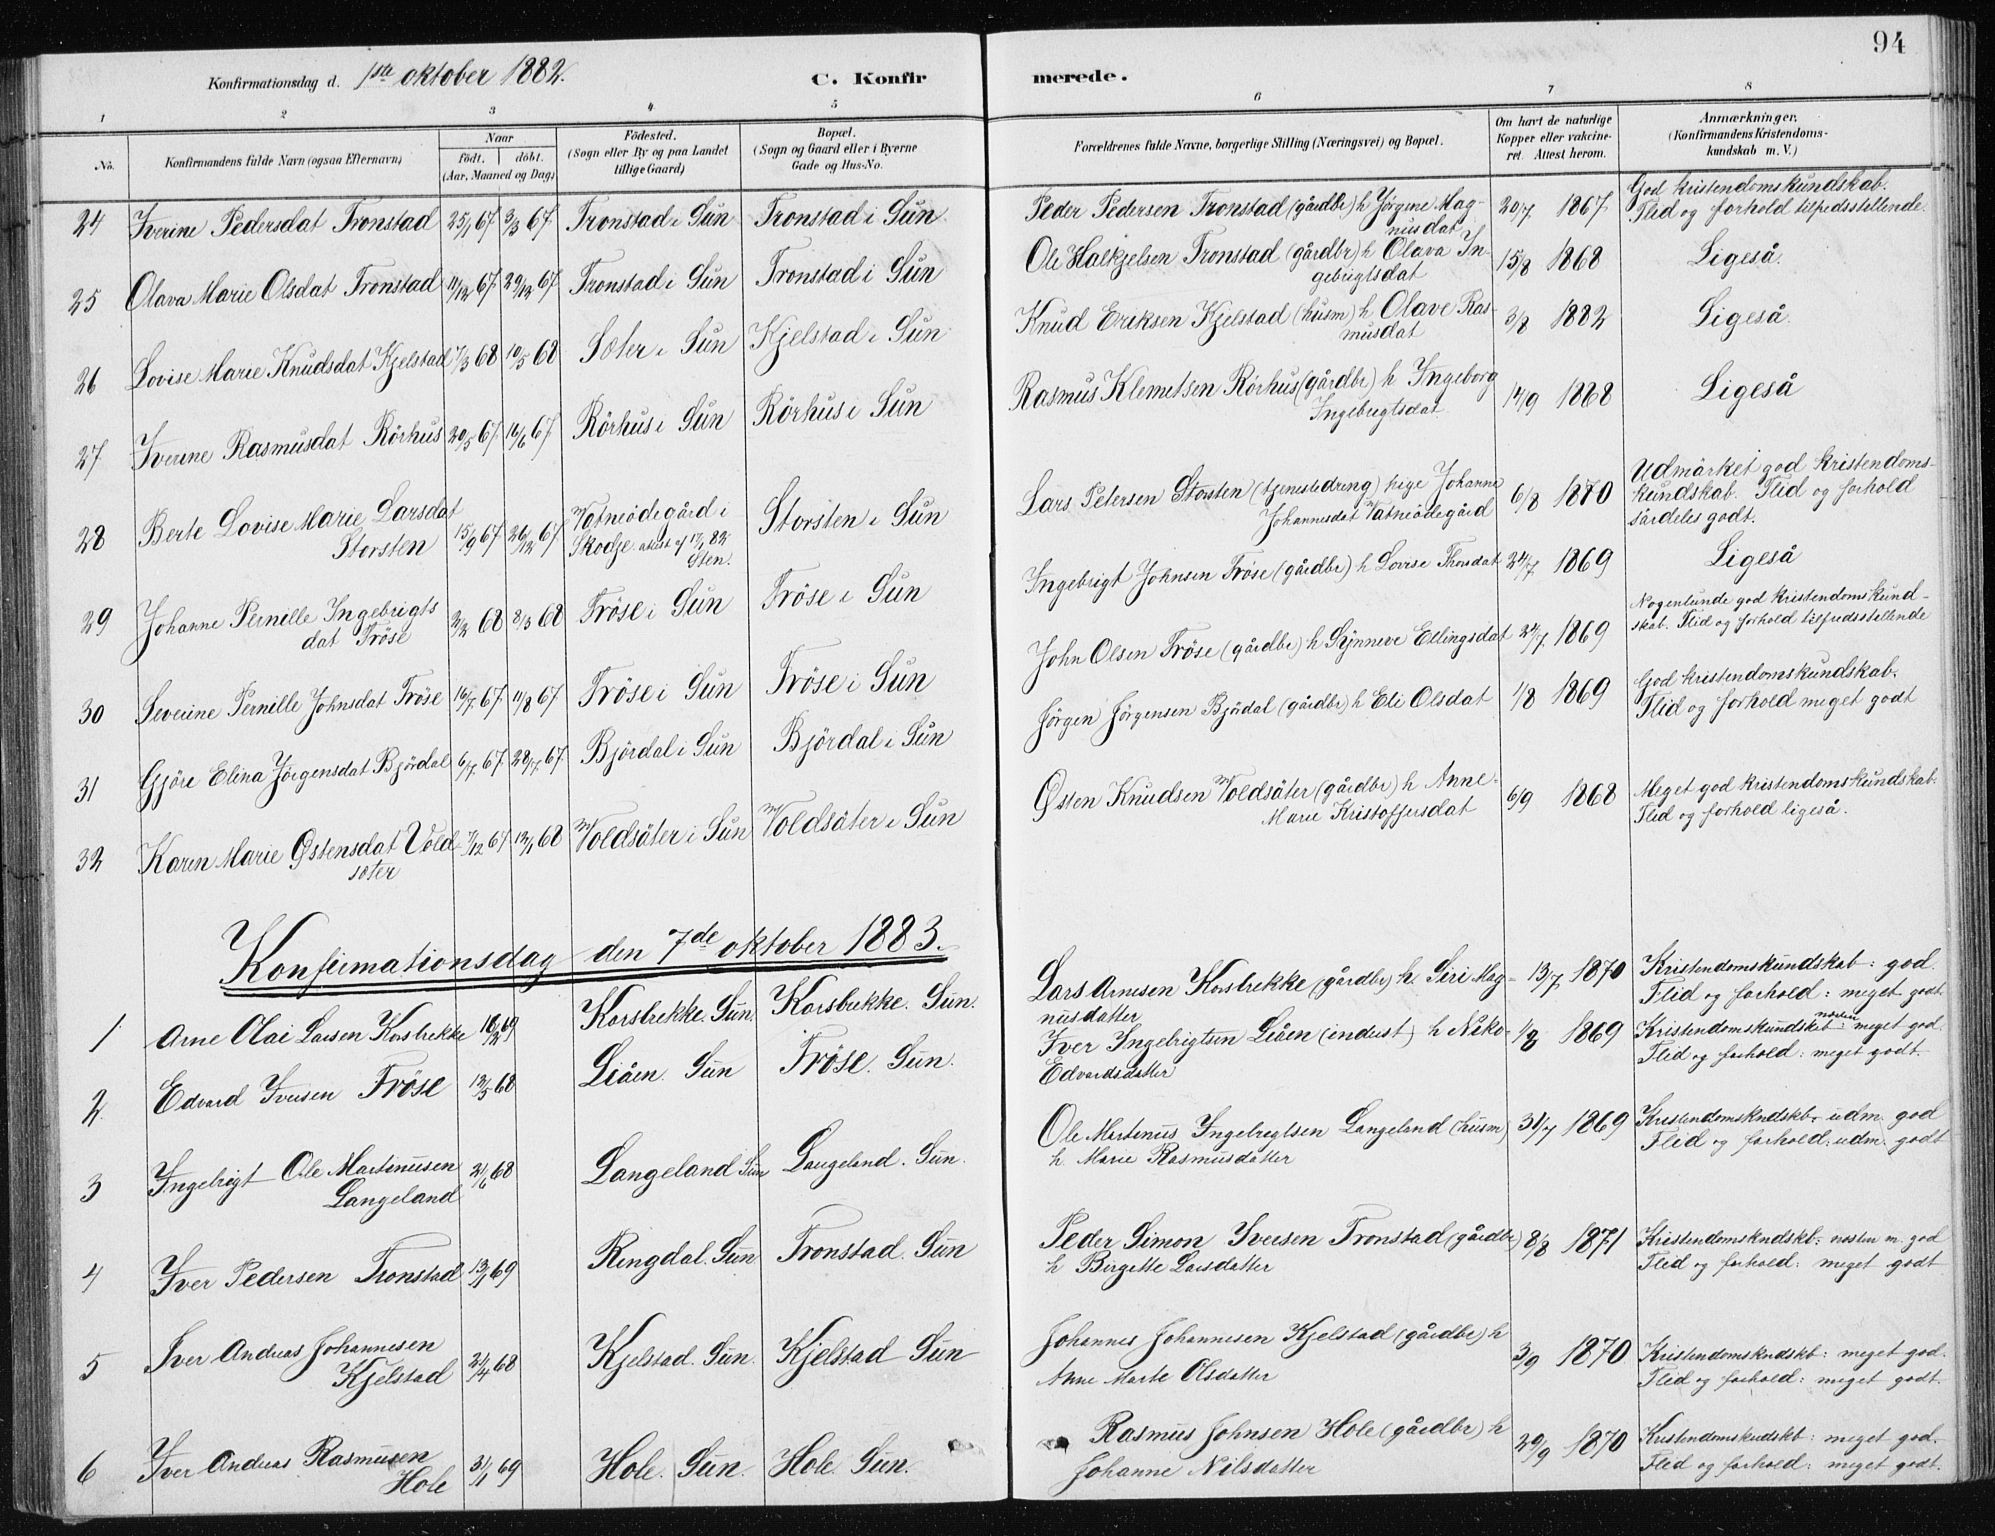 94
Konfirmationsdag d. 1ste oktober 1882.
C. Konfirmerede.
1 2 3 4 5 6 7 8
No.
Konfirmandens fulde Navn (ogsaa Efternavn)
Naar
födt. döbt.
(Aar, Maaned og Dag)
Födested.
(Sogn eller By og paa Landet
tillige Gaard)
Bopæl.
(Sogn og Gaard eller i Byerne
Gade og Hus-No.
Forældrenes fulde Navne, borgerlige Stilling (Næringsvei) og Bopæl.
Om havt de naturlige
Kopper eller vakcine-
ret. Attest herom.
Anmærkninger.
(Konfirmandens Kristendoms-
kundskab m. V.)
24 Iverine Pedersdat Tronstad 25/1 67 3/3 67 Tronstad i Sun Tronstad i Sun Peder Pedersen Tronstad (gårdbr) h Jörgine Mag- 20/7 1867 God kristendomskundskab.
nusdat Flid og forhold tilfredsstillende.
25 Olava Marie Olsdat Tronstad 11/12 67 29/12 67 Tronstad i Sun Tronstad i Sun Ole Halkjelsen Tronstad (gårdbr) h Olava In- 15/8 1868 Ligeså.
gebrigtsdat
26 Lovise Marie Knudsdat Kjelstad 7/3 68 10/5 68 Sæter i Sun Kjelstad i Sun Knud Eriksen Kjelstad (husm) h Olave Ras- 3/8 1882 Ligeså.
musdat
27 Iverine Rasmusdat Rörhus 20/5 67 16/6 67 Rörhus i Sun Rörhus i Sun Rasmus Klemetsen Rörhus (gårdbr) h Ingeborg 14/9 1868 Ligeså
Ingebrigtsdat
28 Berte Lovise Marie Larsdat Storsten 15/9 67 26/12 67 Vatneödegård i Storsten i Sun Lars Petersen Storsten (tjenestedreng) pige Johanne 6/8 1880 Udmärket god kristendoms-
Skodje attest af 17/1 82 Johannesdat Vatneödegård kundskab. Flid og forhold
Sten. särdeles godt.
29 Johanne Pernille Ingebrigts 2/2 68 8/3 68 Fröse i Sun Fröse i Sun Ingebrigt Johnsen Fröse (gårdbr) h Lovise Thorsdat 24/7 1869 Ligeså
dat Fröse
30 Severine Pernille Johnsdat Fröse 16/7 67 11/8 67 Fröse i Sun Fröse i Sun John Olsen Fröse (gårdbr) h Synneve Ellingsdat 24/7 1869 Nogenlunde god kristendomskund-
skab. Flid og forhold tilfredsstillende
31 Gjöre Elina Jörgensdat Björdal 6/7 67 28/7 67 Björdal i Sun Björdal i Sun Jörgen Jörgensen Björdal (gårdbr) h Eli Olsdat 1/8 1869 God kristendomskundskab.
Flid og forhold meget godt
32 Karen Marie Østensdat Vold 7/12 67 12/1 68 Voldsäter i Sun Voldsäter i Sun Østen Knudsen Voldsäter (gårdbr) h Anne 6/9 1868 Meget god kristendomskundskab.
sæter Marie Kristoffersdat Flid og forhold ligeså.
Konfirmationsdag den 7de oktober 1883.
1 Arne Olai Larsen Korsbrekke 18/2 69 Korsbrekke. Sun. Korsbrekke. Sun. Lars Arnesen Korsbrekke (gårdbr) h. Siri Mag- 13/7 1870 Kristendomskundskab: god.
nusdatter Flid og forhold: meget godt.
2 Edvard Iversen Fröse 12/5 68 Liåen. Sun Fröse. Sun. Iver Ingebrigtsen Liåen (inderst) h Niko- 1/8 1869 Kristendomskundskb: næsten meget god.
Edvardsdatter Flid og forhold: meget godt.
3 Ingebrigt Ole Martinusen 21/6 68 Langeland Sun Langeland. Sun. Ole Martinus Ingebrigtsen Langeland (husm) 31/7 1869 Kristendomskndskb. udm. god
Langeland h Marie Rasmusdatter Flid og forhold: udm. godt
4 Iver Pedersen Tronstad 13/1 69 Ringdal. Sun Tronstad. Sun Peder Simon Iversen Tronstad (gårdbr) 8/8 1871 Kristendomskndskb: næsten m. god
h Birgitte Larsdatter Flid og forhold: meget godt
5 Iver Andreas Johannesen 21/4 68 Kjelstad. Sun. Kjelstad Sun Johannes Johannesen Kjelstad (gårdbr) h 3/9 1870 Kristendomskndskb: meget god.
Kjelstad Anne Marte Olsdatter Flid og forhold: meget godt.
6 Iver Andreas Rasmusen 31/1 69 Hole. Sun. Hole. Sun. Rasmus Johnsen Hole (gårdbr) h 29/9 1870 Kristendomskndskb: meget god.
Hole Johanne Nilsdatter Flid og forhold: meget godt.